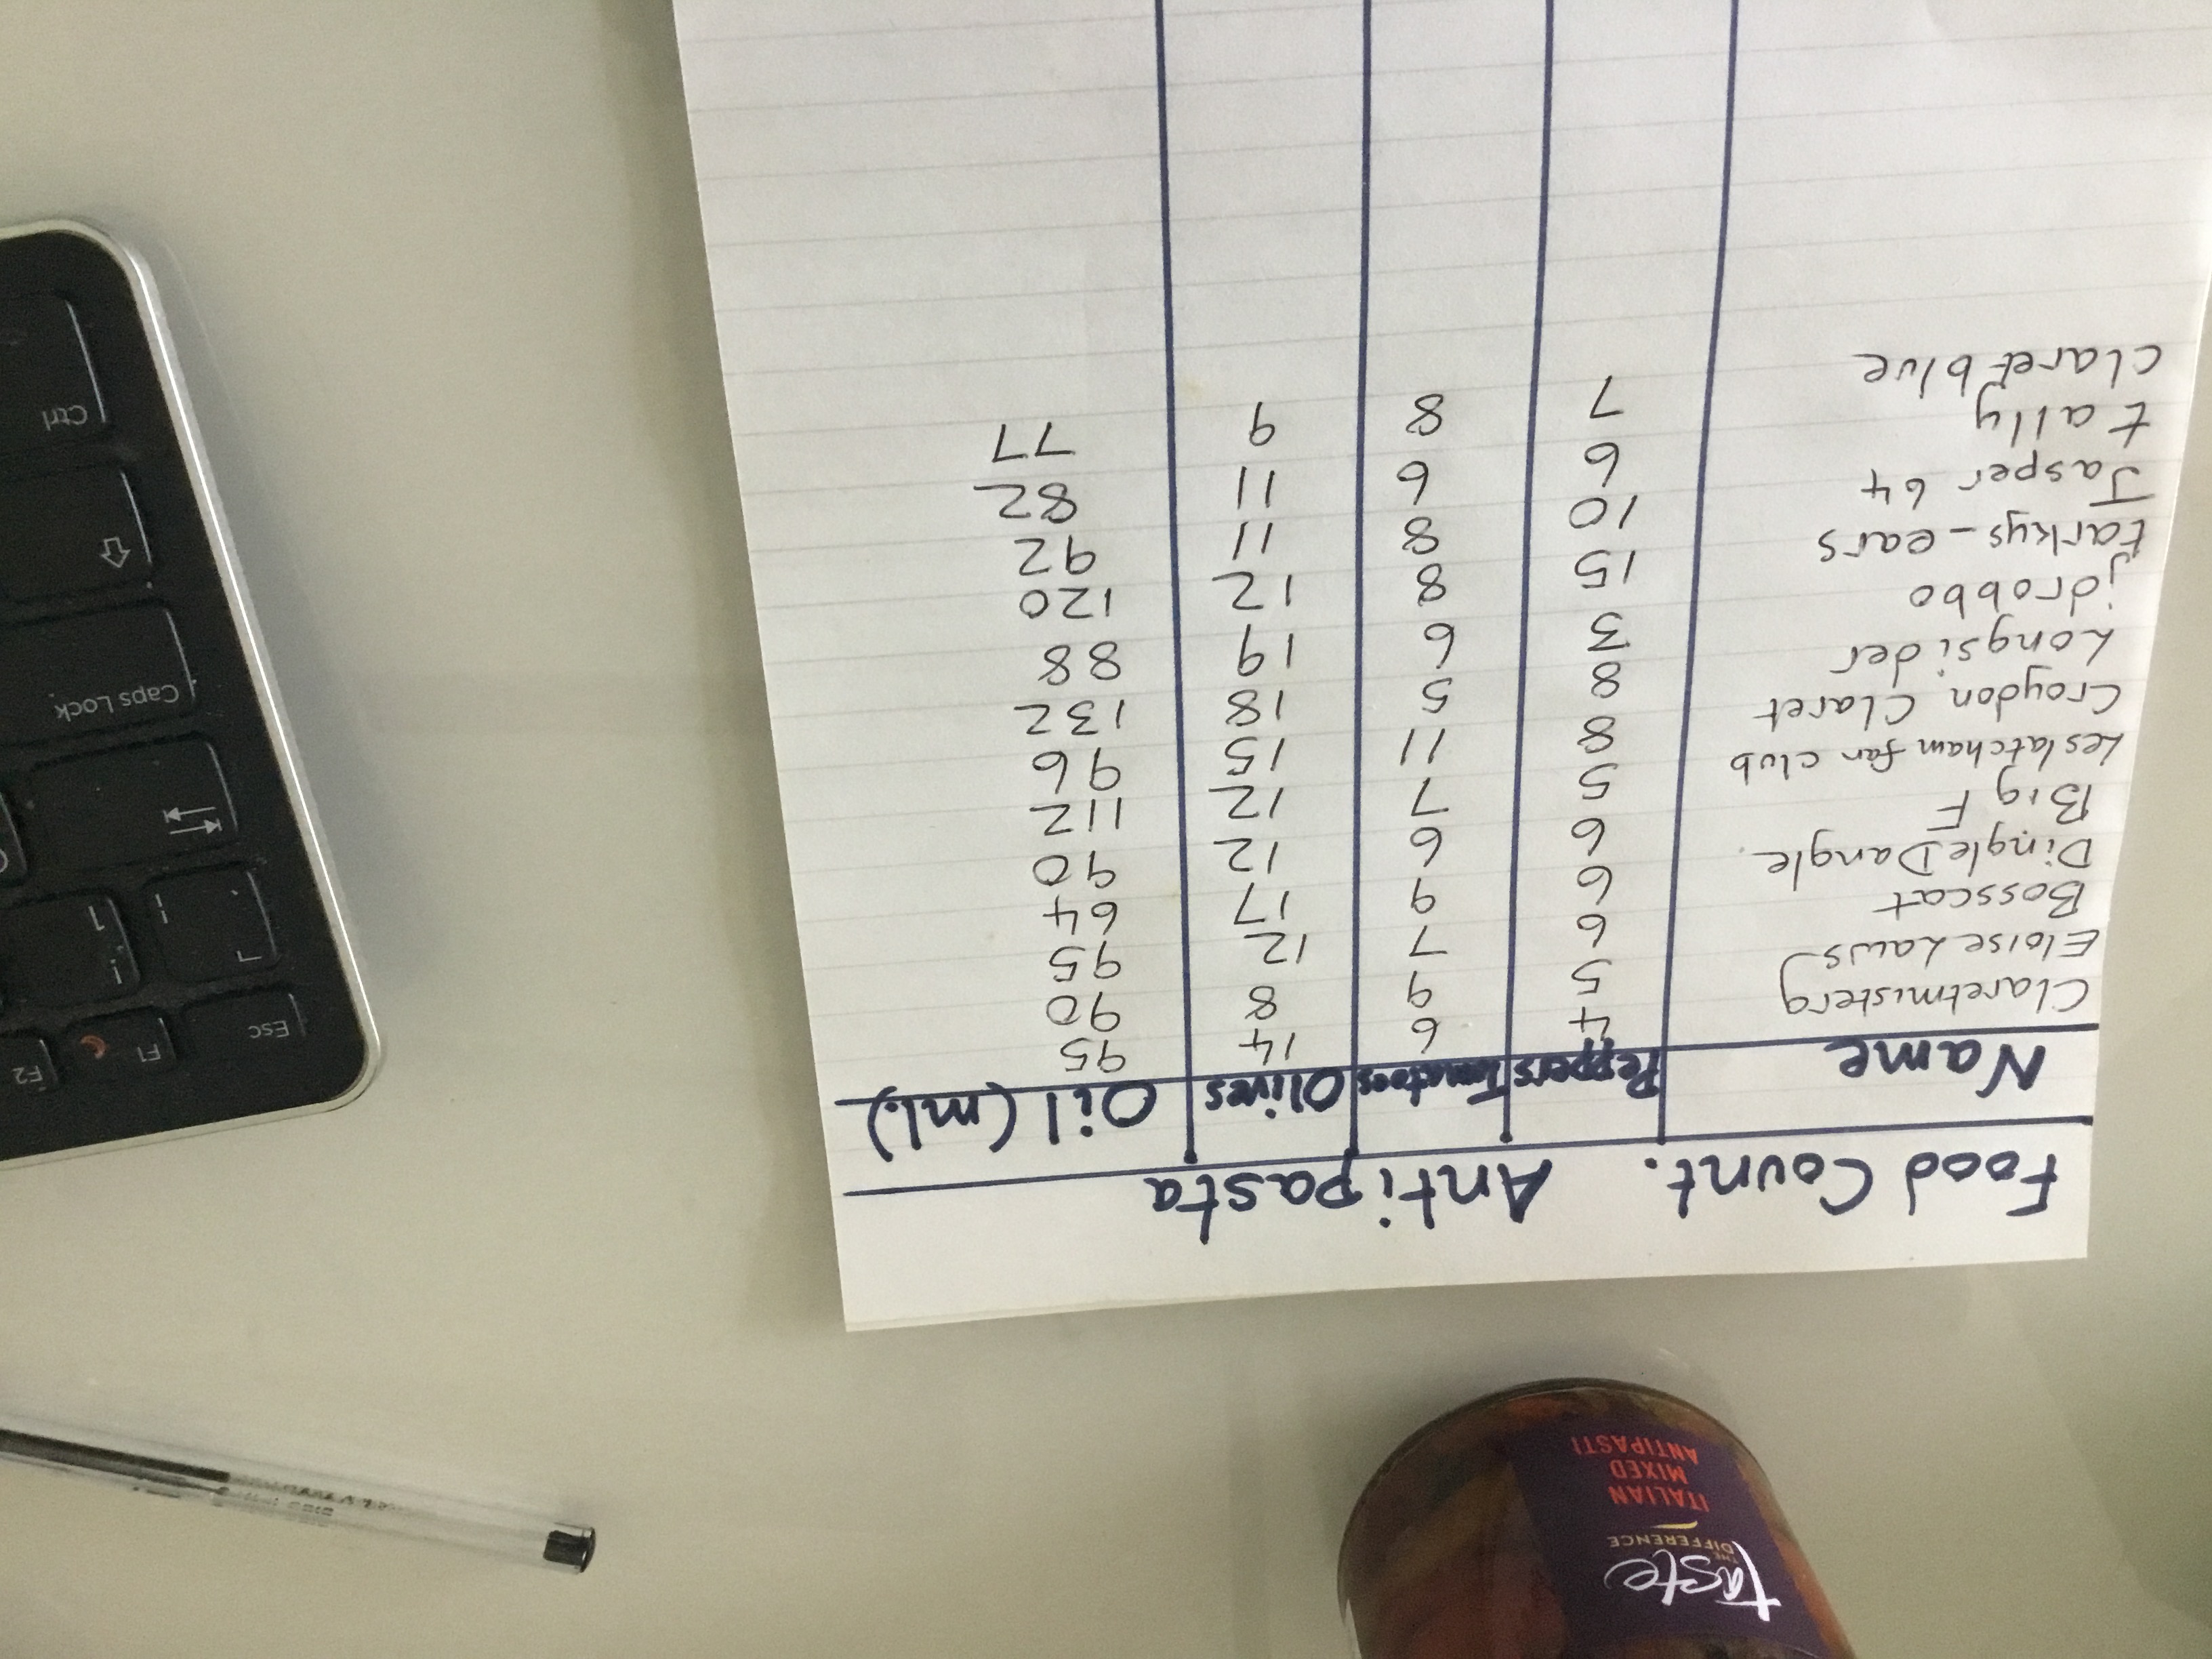 Food Count. Antipasta
Name Peppers Tomatoes Olives Oil (ml.)
Claretmisterg 4 6 14 95
Eloise Laws 5 9 8 90
Bosscat 6 7 12 95
DingleDangle 6 9 17 64
Big F 6 6 12 90
Leslatcham fan club 5 7 12 112
Croydon Claret 8 11 15 96
Longsider 8 5 18 132
jdrobbo 3 6 19 88
tarkys-ears 15 8 12 120
Jasper 64 10 8 11 92
tally 6 6 11 82
Claret blue 7 8 9 77
taste
THE
DIFFERENCE
ITALIAN
MIXED
ANTIPASTI
Esc F1 F2
! 1
Caps Lock
Ctrl